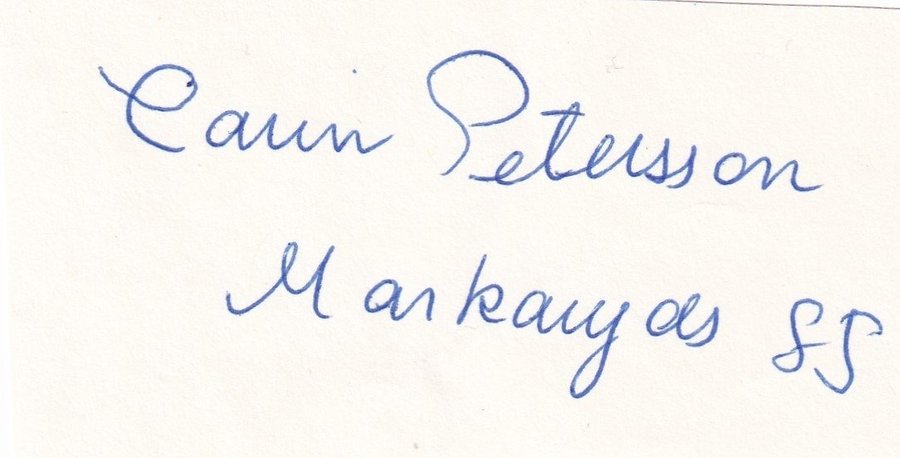 Carin Petersson
Markaryds SS